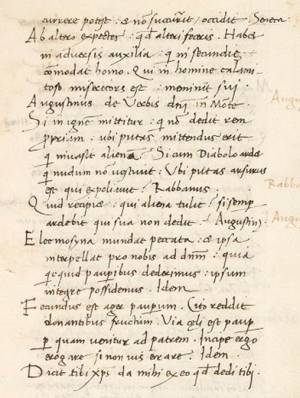 currere potest : & nō succurrit, occidit. Seneca
Ab altro expectes : qd altri feceris. Habet
in adversis auxilia : qui in secundis
cōmodat homo. Qui in homine calami-
toso misericors est : meminit sui
Augustinus de Verbis dnj in Mote. Augu
Si in ignē mittitur : q nō dedit rem
ppriam : ubi putas mittendus erit
q invasit alienā? Si cum Diabolo ardet
q nudum nō vestivit. Ubi putas arsurus
est qui expoliavit? Rabbanus. Rabba
Quid recipiet : qui aliena tulit? si semp
ardebit qui sua non dedit. Augustin9 Augus
Eleemosyna mundat peccata : & ipsa
interpellat pro nobis ad dnm : quia
qcquid paupibus dederimus : ipsum
integre possidemus. Idem
Fecundus est ager pauperum. Cito reddit
donantibus fructum. Via celi est paup
p quam venitur ad patrem. Incipe ergo
erogare si non vis errare. Idem.
Dicit tibi xps da mihi ex eo qd dedi tibi.